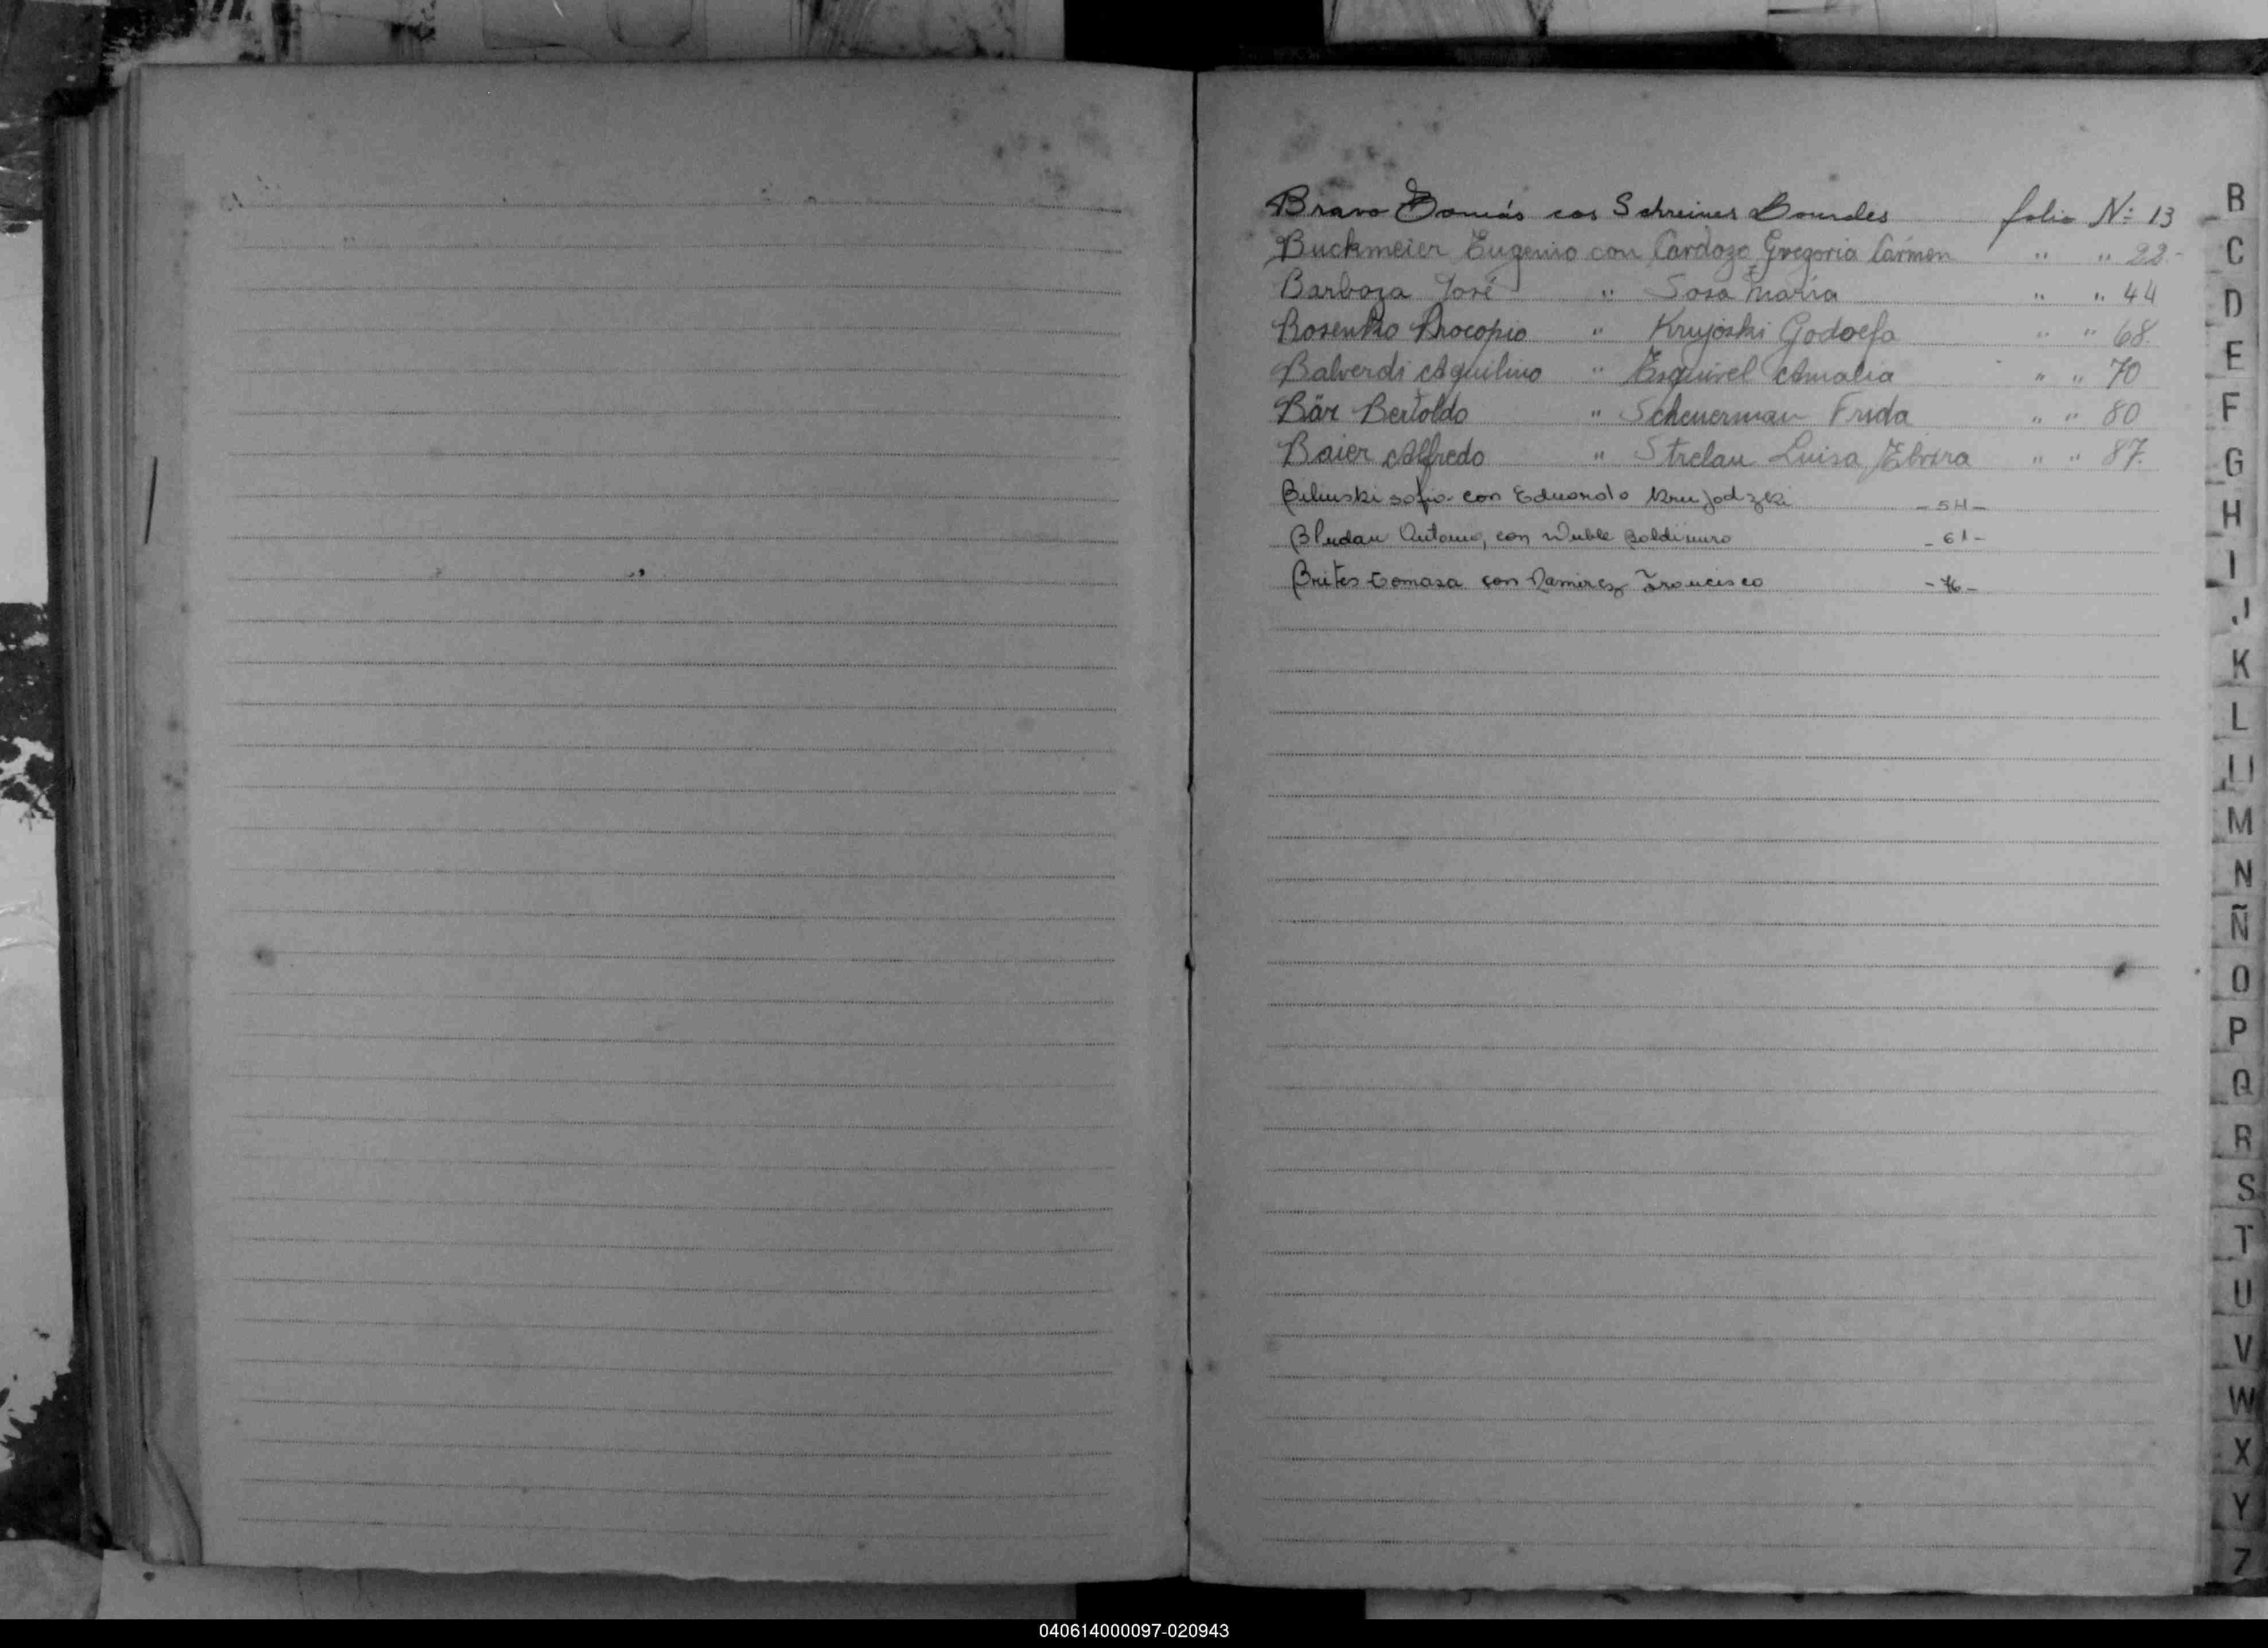 Bravo Tomás con Schreiner Lourdes folio Nº 13
Buckmeier Eugenio con Cardozo Gregoria Cármen " " 22-
Barboza José " Sosa María " " 44
Bosenko Procopio " Krujoski Godoefa " " 68.
Balverdi Aquilino " Esquivel Amalia " " 70
Bär Bertoldo " Scheuerman Frida " " 80
Baier Alfredo " Strelau Luisa Elvira " " 87.
Bilinski sofia con Eduardo Krujodzki - 54 -
Bludau Antonio, con Wuble - 61 -
Brites tomasa con Ramirez Francisco - 76 -
B
C
D
E
F
G
H
I
J
K
L
Ll
M
N
Ñ
O
P
Q
R
S
T
U
V
W
X
Y
Z
040614000097-020943